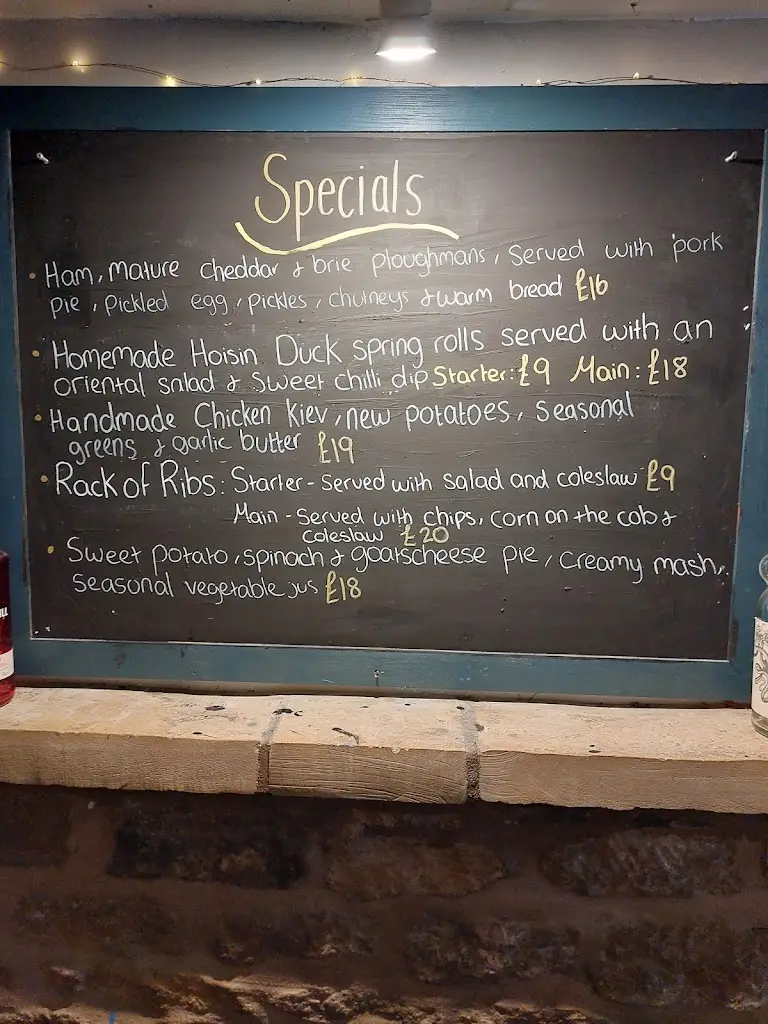 Specials
Ham, mature cheddar & brie ploughmans, served with pork
pie, pickled egg, pickles, chutneys & warm bread £16
Homemade Hoisin Duck spring rolls served with an
oriental salad & sweet chilli dip Starter: £9 Main: £18
Handmade Chicken Kiev, new potatoes, seasonal
greens & garlic butter £19
Rack of Ribs: Starter - Served with salad and coleslaw £9
Main - Served with chips, corn on the cob &
coleslaw £20
Sweet potato, spinach & goatscheese pie, creamy mash,
seasonal vegetable jus £18